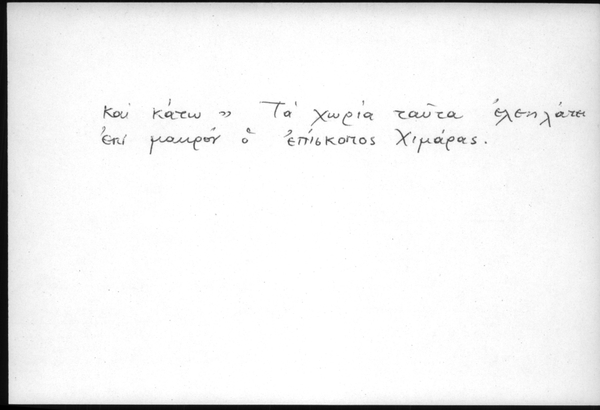 καὶ κάτω » Τὰ χωρία ταῦτα ἐλεηλάτει
ἐπὶ μακρὸν ὁ ἐπίσκοπος Χιμάρας.